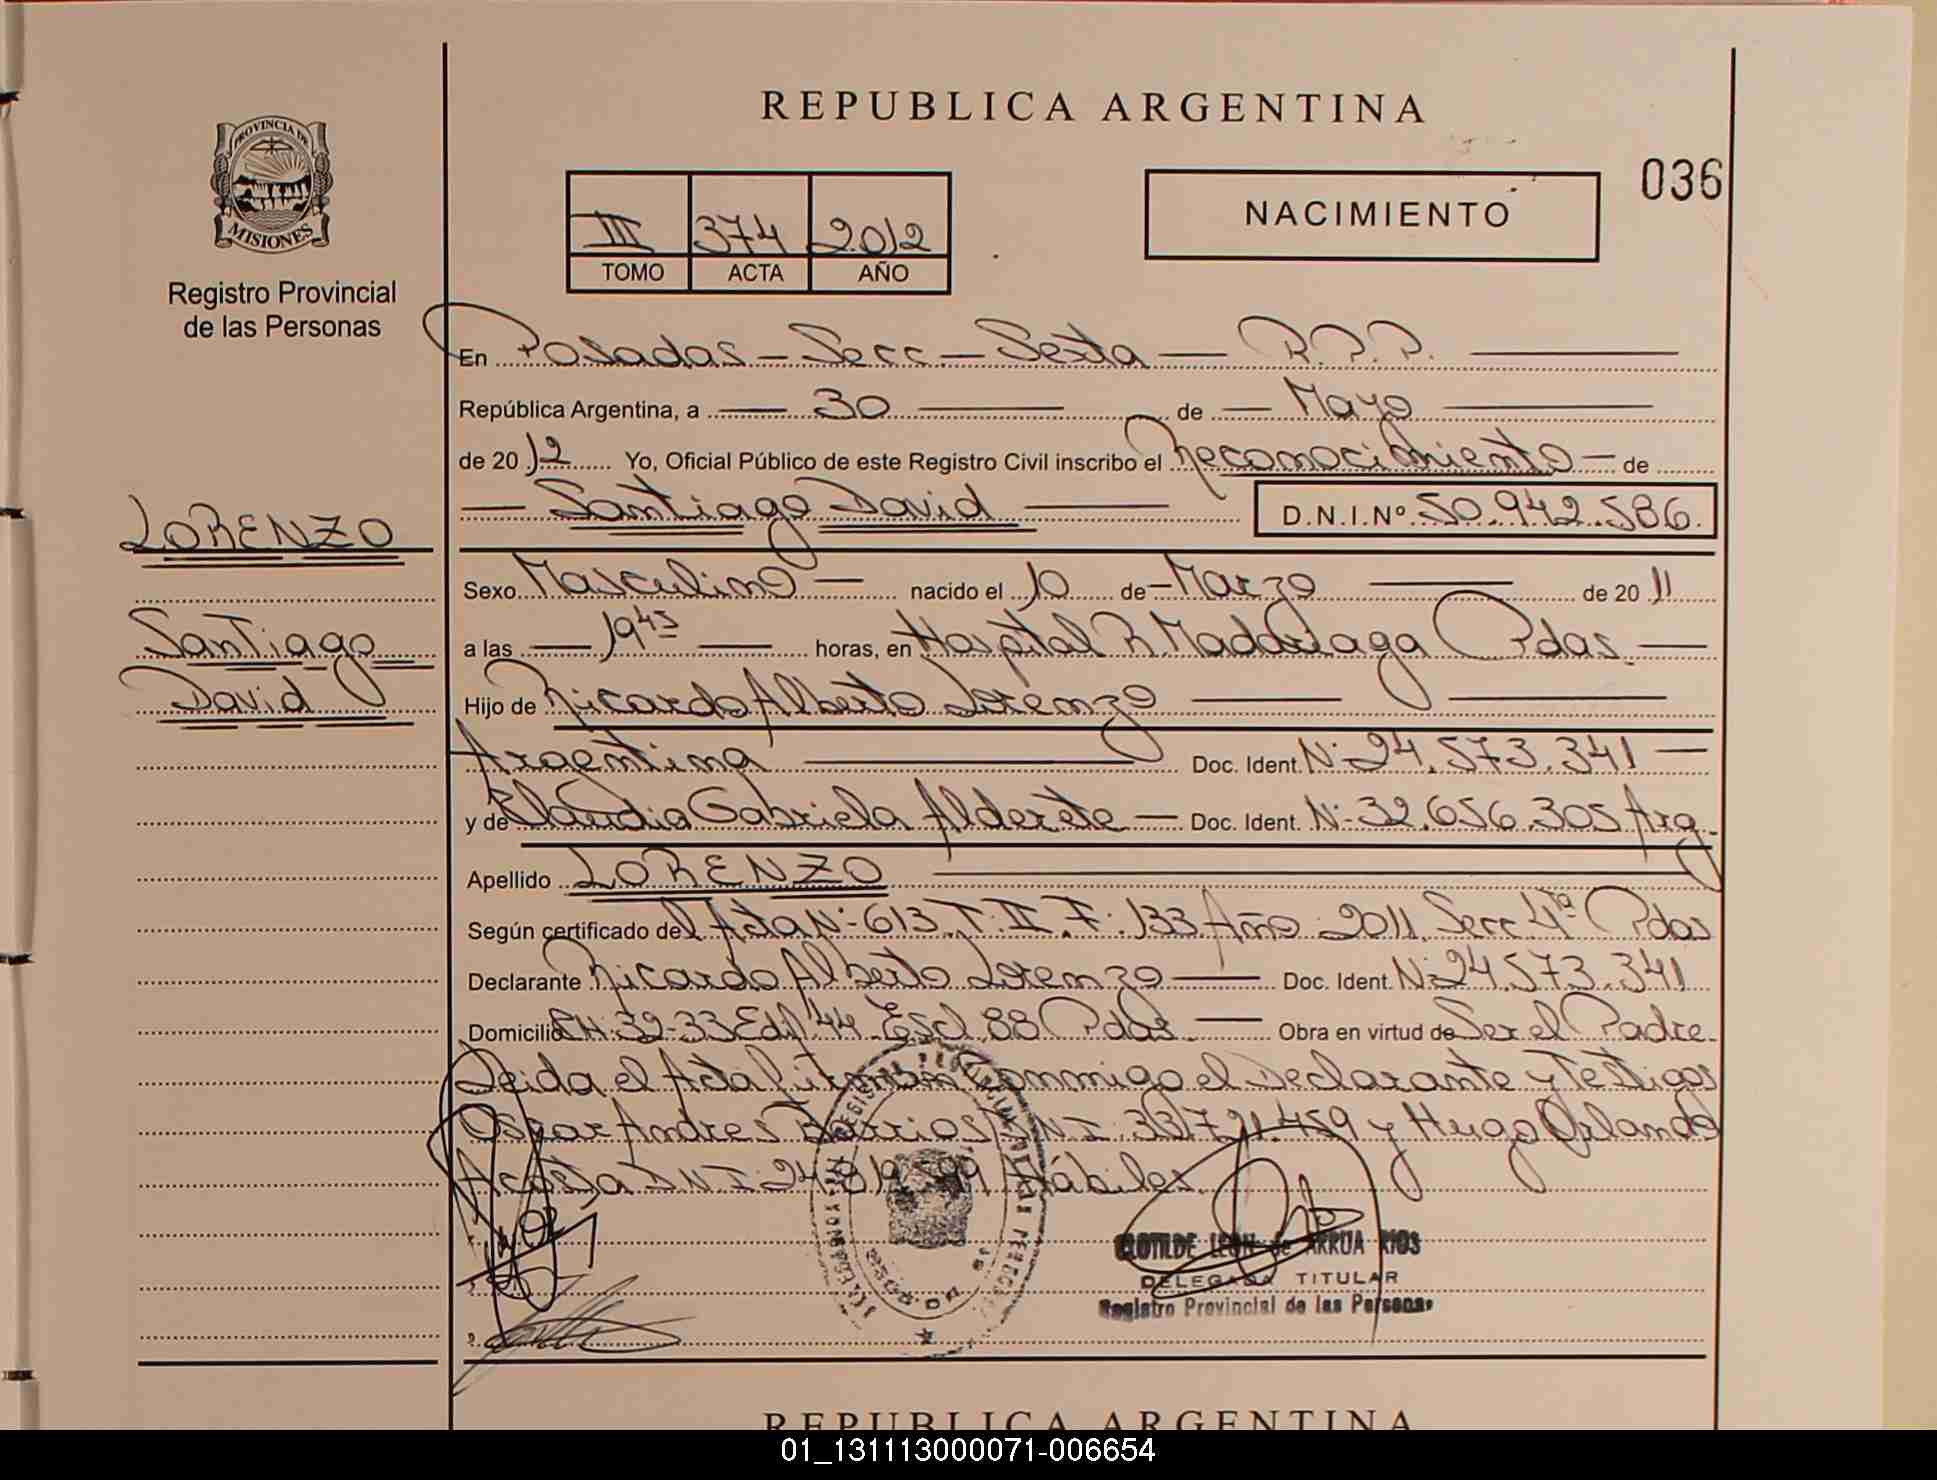 REPUBLICA ARGENTINA
036
PROVINCIA DE
MISIONES
Registro Provincial
de las Personas
III 374 2012
TOMO ACTA AÑO
NACIMIENTO
En Posadas - Secc - Sexta - R.P.P.
República Argentina, a 30 de Mayo
de 2012 Yo, Oficial Público de este Registro Civil inscribo el Reconocimiento - de
Santiago David D.N.I.Nº 50.942.586
LORENZO
Santiago
David
Sexo Masculino nacido el 10 de Marzo de 2011
a las 19 45 horas, en Hospital R. Madariaga Pdas.
Hijo de Ricardo Alberto Lorenzo
Argentina Doc. Ident. Nº 24.573.341
y de Claudia Gabriela Alderete - Doc. Ident. Nº 32.656.305 Arg.
Apellido LORENZO
Según certificado del Acta Nº 613 T: II F: 133 Año 2011 Secc 4ta Pdas
Declarante Ricardo Alberto Lorenzo Doc. Ident. Nº 24.573.341
Domicilio CH 32-33 Edif 44 Esc 88 Pdas. Obra en virtud de Ser el Padre
Leida el Acta firman conmigo el Declarante y Testigos
Oscar Andres Barrios DNI: 33.721.459 y Hugo Orlando
Acosta DNI 24.819. Hábiles
CLOTILDE LEON de ARRUA RIOS
DELEGADA TITULAR
Registro Provincial de las Personas
REPUBLICA ARGENTINA
01_131113000071-006654